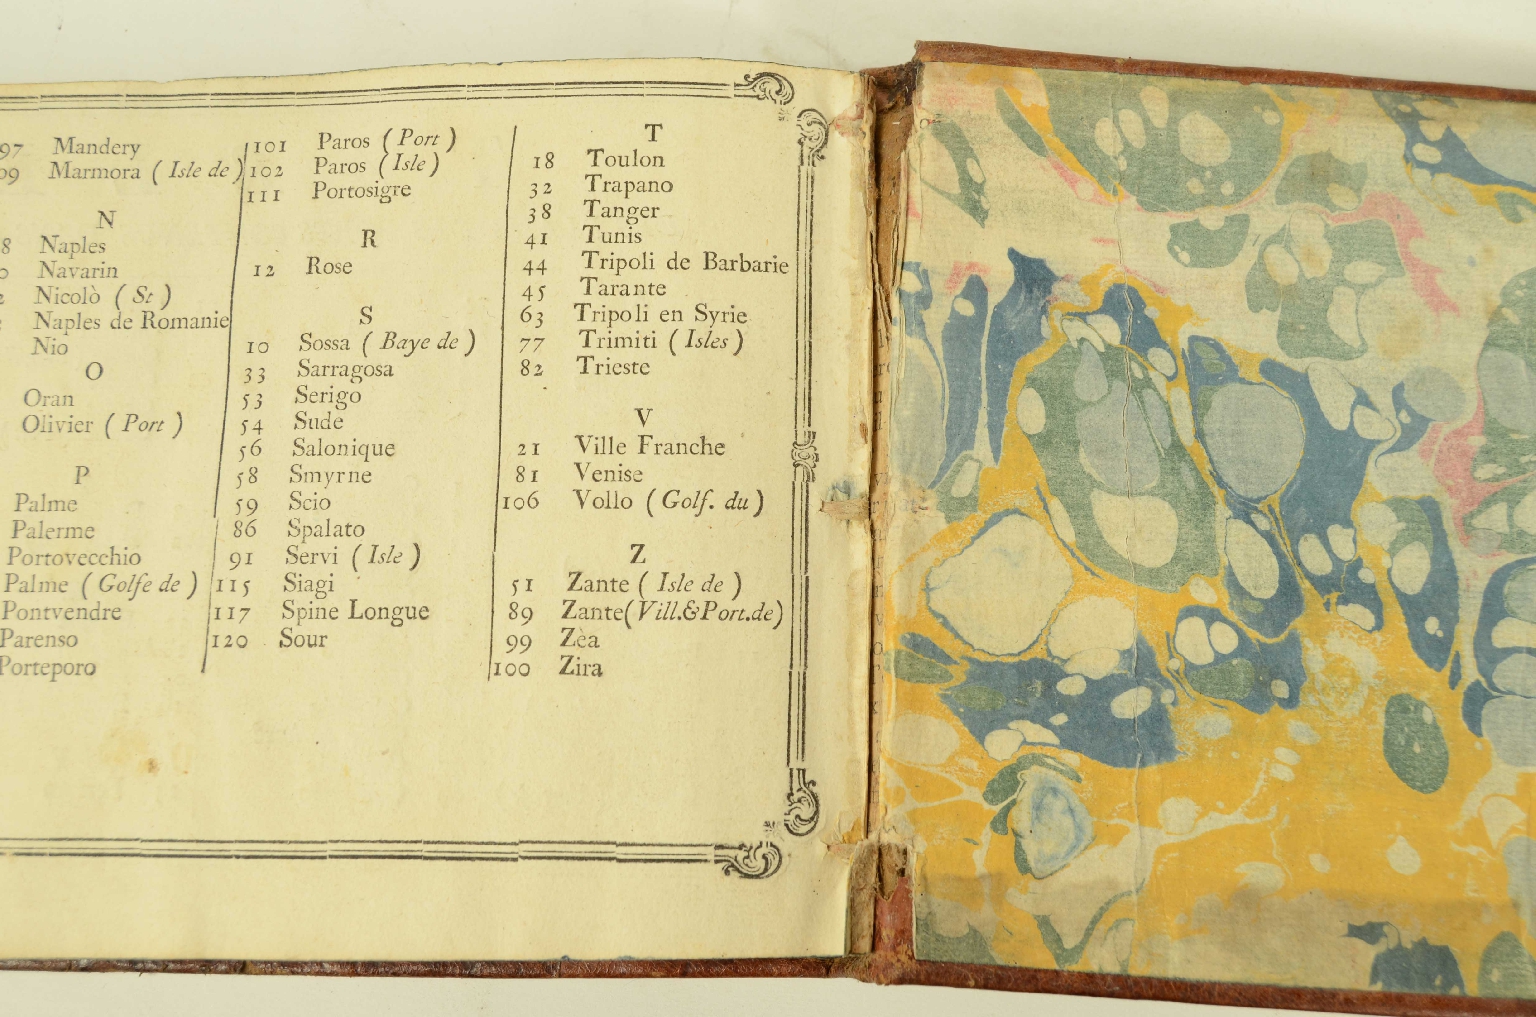 97 Mandery
09 Marmora ( Isle de )
N
8 Naples
Navarin
Nicolò ( St )
Naples de Romanie
Nio
O
Oran
Olivier ( Port )
P
Palme
Palerme
Portovecchio
Palme ( Golfe de )
Pontvendre
Parenso
Porteporo
101 Paros ( Port )
102 Paros ( Isle )
111 Portosigre
R
12 Rose
S
10 Sossa ( Baye de )
33 Sarragosa
53 Serigo
54 Sude
56 Salonique
58 Smyrne
59 Scio
86 Spalato
91 Servi ( Isle )
115 Siagi
117 Spine Longue
120 Sour
T
18 Toulon
32 Trapano
38 Tanger
41 Tunis
44 Tripoli de Barbarie
45 Tarante
63 Tripoli en Syrie
77 Trimiti ( Isles )
82 Trieste
V
21 Ville Franche
81 Venise
106 Vollo ( Golf. du )
Z
51 Zante ( Isle de )
89 Zante( Vill.&Port.de)
99 Zèa
100 Zira